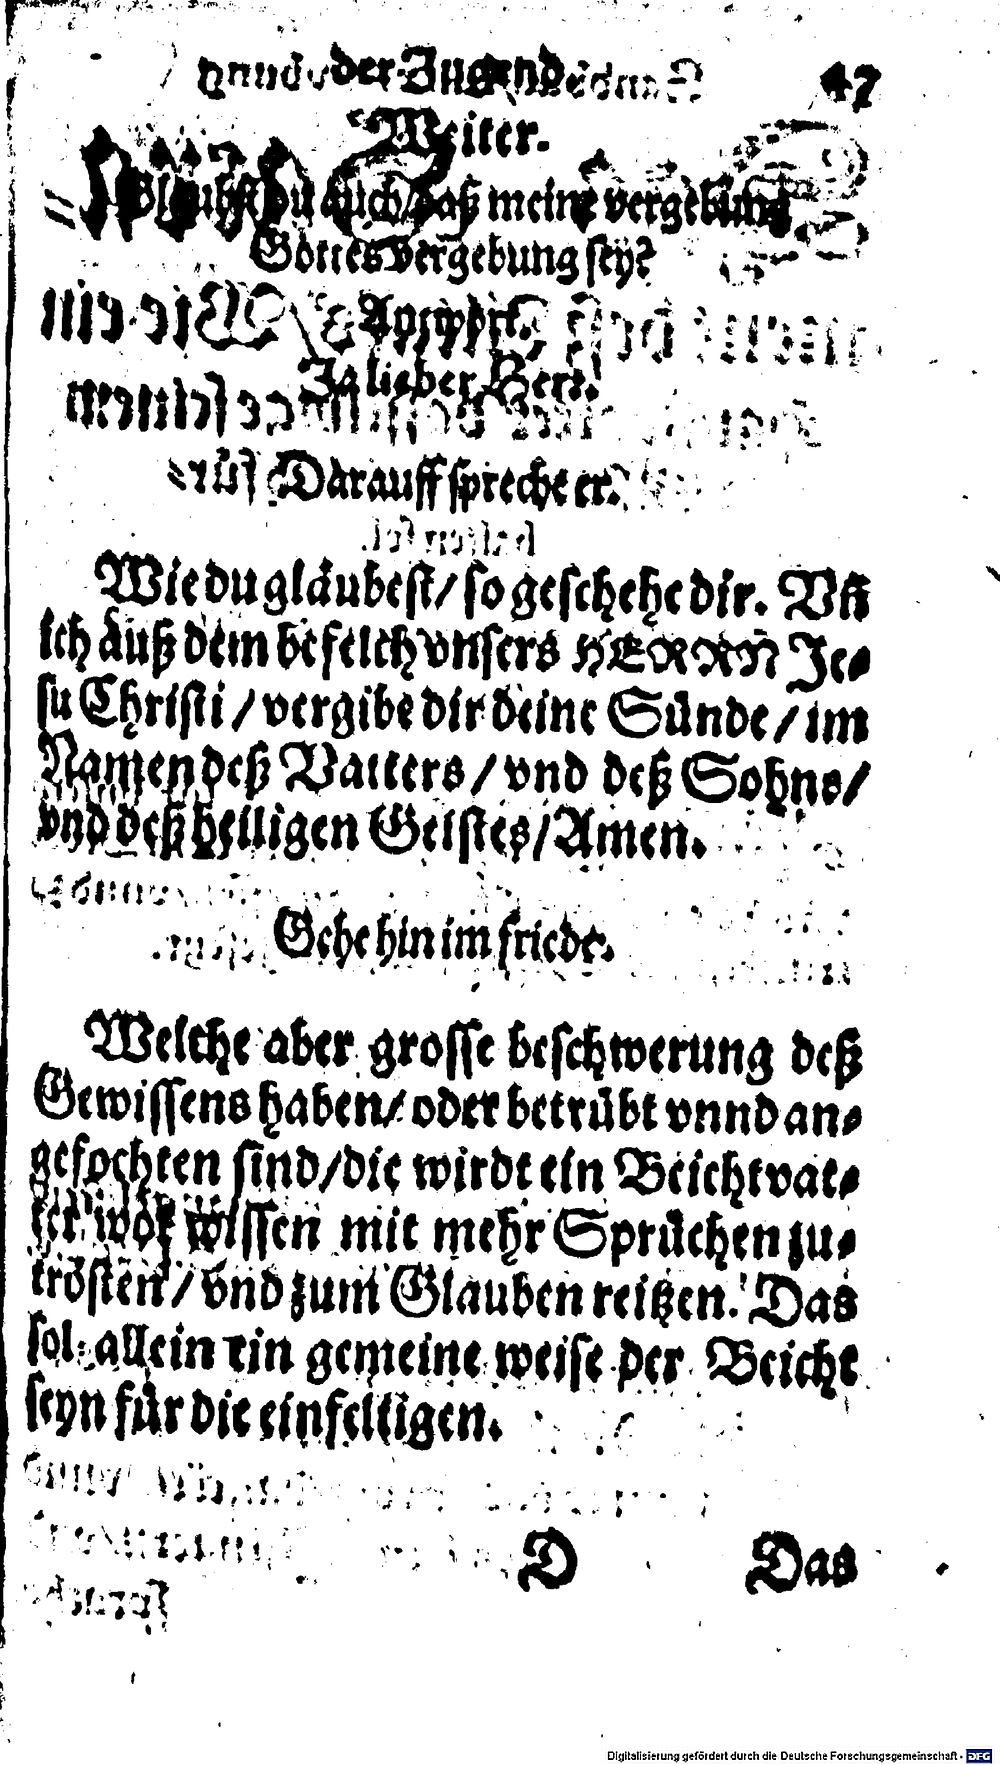 der Jugend. 47
Weiter.
Glaubst du auch/ daß meine vergebung
Gottes vergebung sey?
Antwort.
Ja lieber Herr.
Darauff spreche er.
Wie du gläubest/ so geschehe dir. Vñ
ich auß dem befelch vnsers HERRN Je-
su Christi / vergibe dir deine Sünde / im
Namen deß Vatters / vnd deß Sohns /
vnd deß heiligen Geistes / Amen.
Gehe hin im friede.
Welche aber grosse beschwerung deß
Gewissens haben/ oder betrübt vnnd an-
gefochten sind/ die wirdt ein Beichtvat-
ter wol wissen mit mehr Sprüchen zu-
trösten / vnd zum Glauben reitzen. Das
sol allein ein gemeine weise der Beicht
seyn für die einfeltigen.
D Das
Digitalisierung gefördert durch die Deutsche Forschungsgemeinschaft - DFG